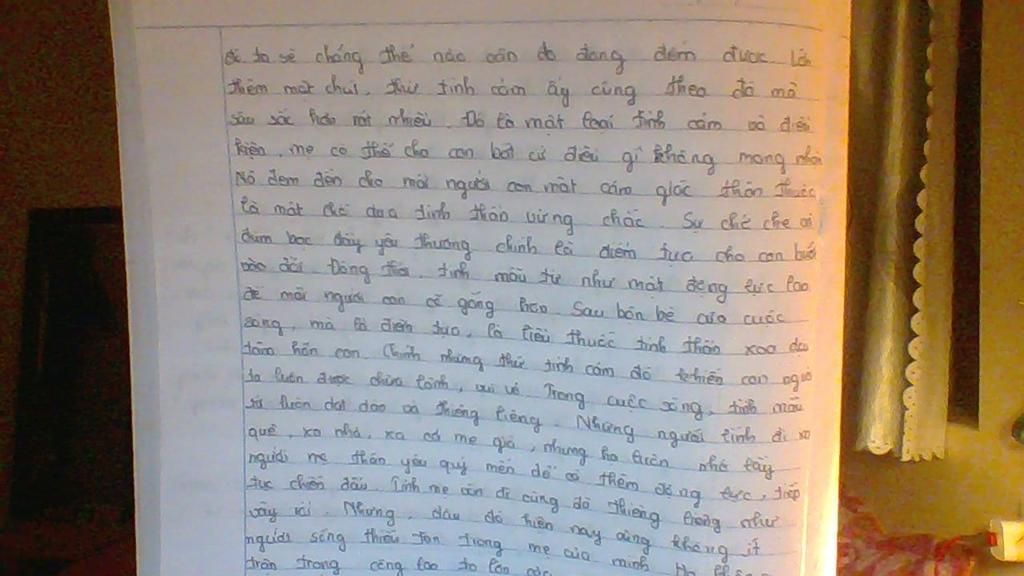 để ta sẽ chẳng thế nào cân đo đong đếm được. Lớn
thêm một chút, thứ tình cảm ấy cũng theo đó mà
sâu sắc hơn rất nhiều. Đó là một loại tình cảm vô điều
kiện, mẹ có thể cho con bất cứ điều gì không mong nhận
Nó đem đến cho mỗi người con một cảm giác thân thuộc
là một chỗ dựa tinh thần vững chắc. Sự chở che
đùm bọc đầy yêu thương chính là điểm tựa cho con bước
vào đời. Đồng thời, tình mẫu tử như một động lực lao
để mỗi người con cố gắng hơn. Sau bốn bề của cuộc
sống, mà là điểm tựa, là liều thuốc tinh thần xoa dịu
tâm hồn con. Chính những thứ tình cảm đó khiến con người
ta luôn được chữa lành, vui vẻ. Trong cuộc sống, tình mẫu
tử luôn dạt dào và thiêng liêng. Những người lính đi xa
quê, xa nhà, xa cả mẹ già, nhưng họ luôn nhớ tới
người mẹ thân yêu quý mến để có thêm động lực, tiếp
tục chiến đấu. Tình mẹ con đi cùng đó thiêng liêng như
vậy rồi. Nhưng, đâu đó hiện nay cũng không ít
người sống thiếu tôn trọng mẹ của mình. Họ
trân trọng công lao to lớn